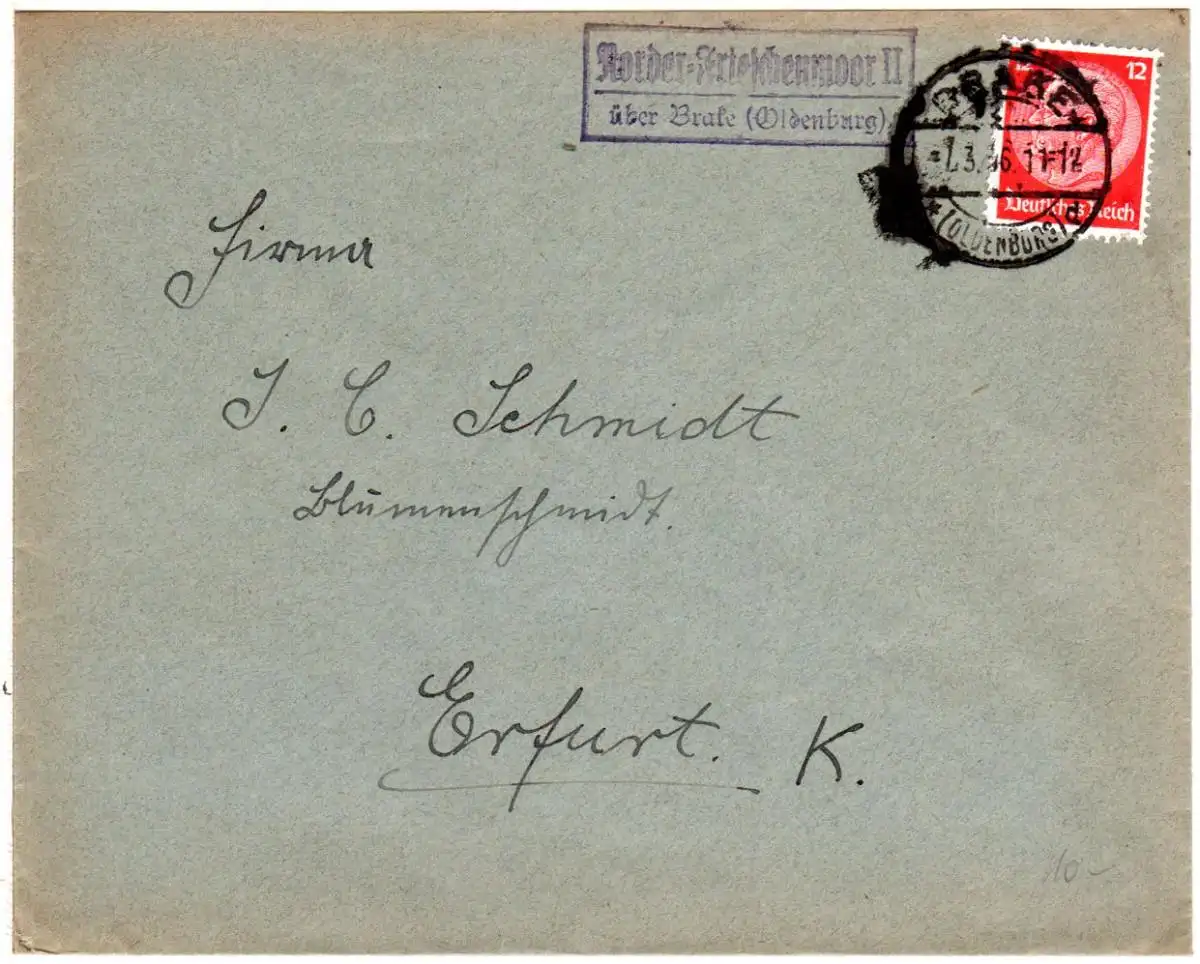 Norder-Frieschenmoor II
über Brake (Oldenburg)
12 12
Deutsches Reich
BRAKE
11-12
(OLDENBURG) d
Firma
J. C. Schmidt
Blumenschmidt.
Erfurt. K.
10-